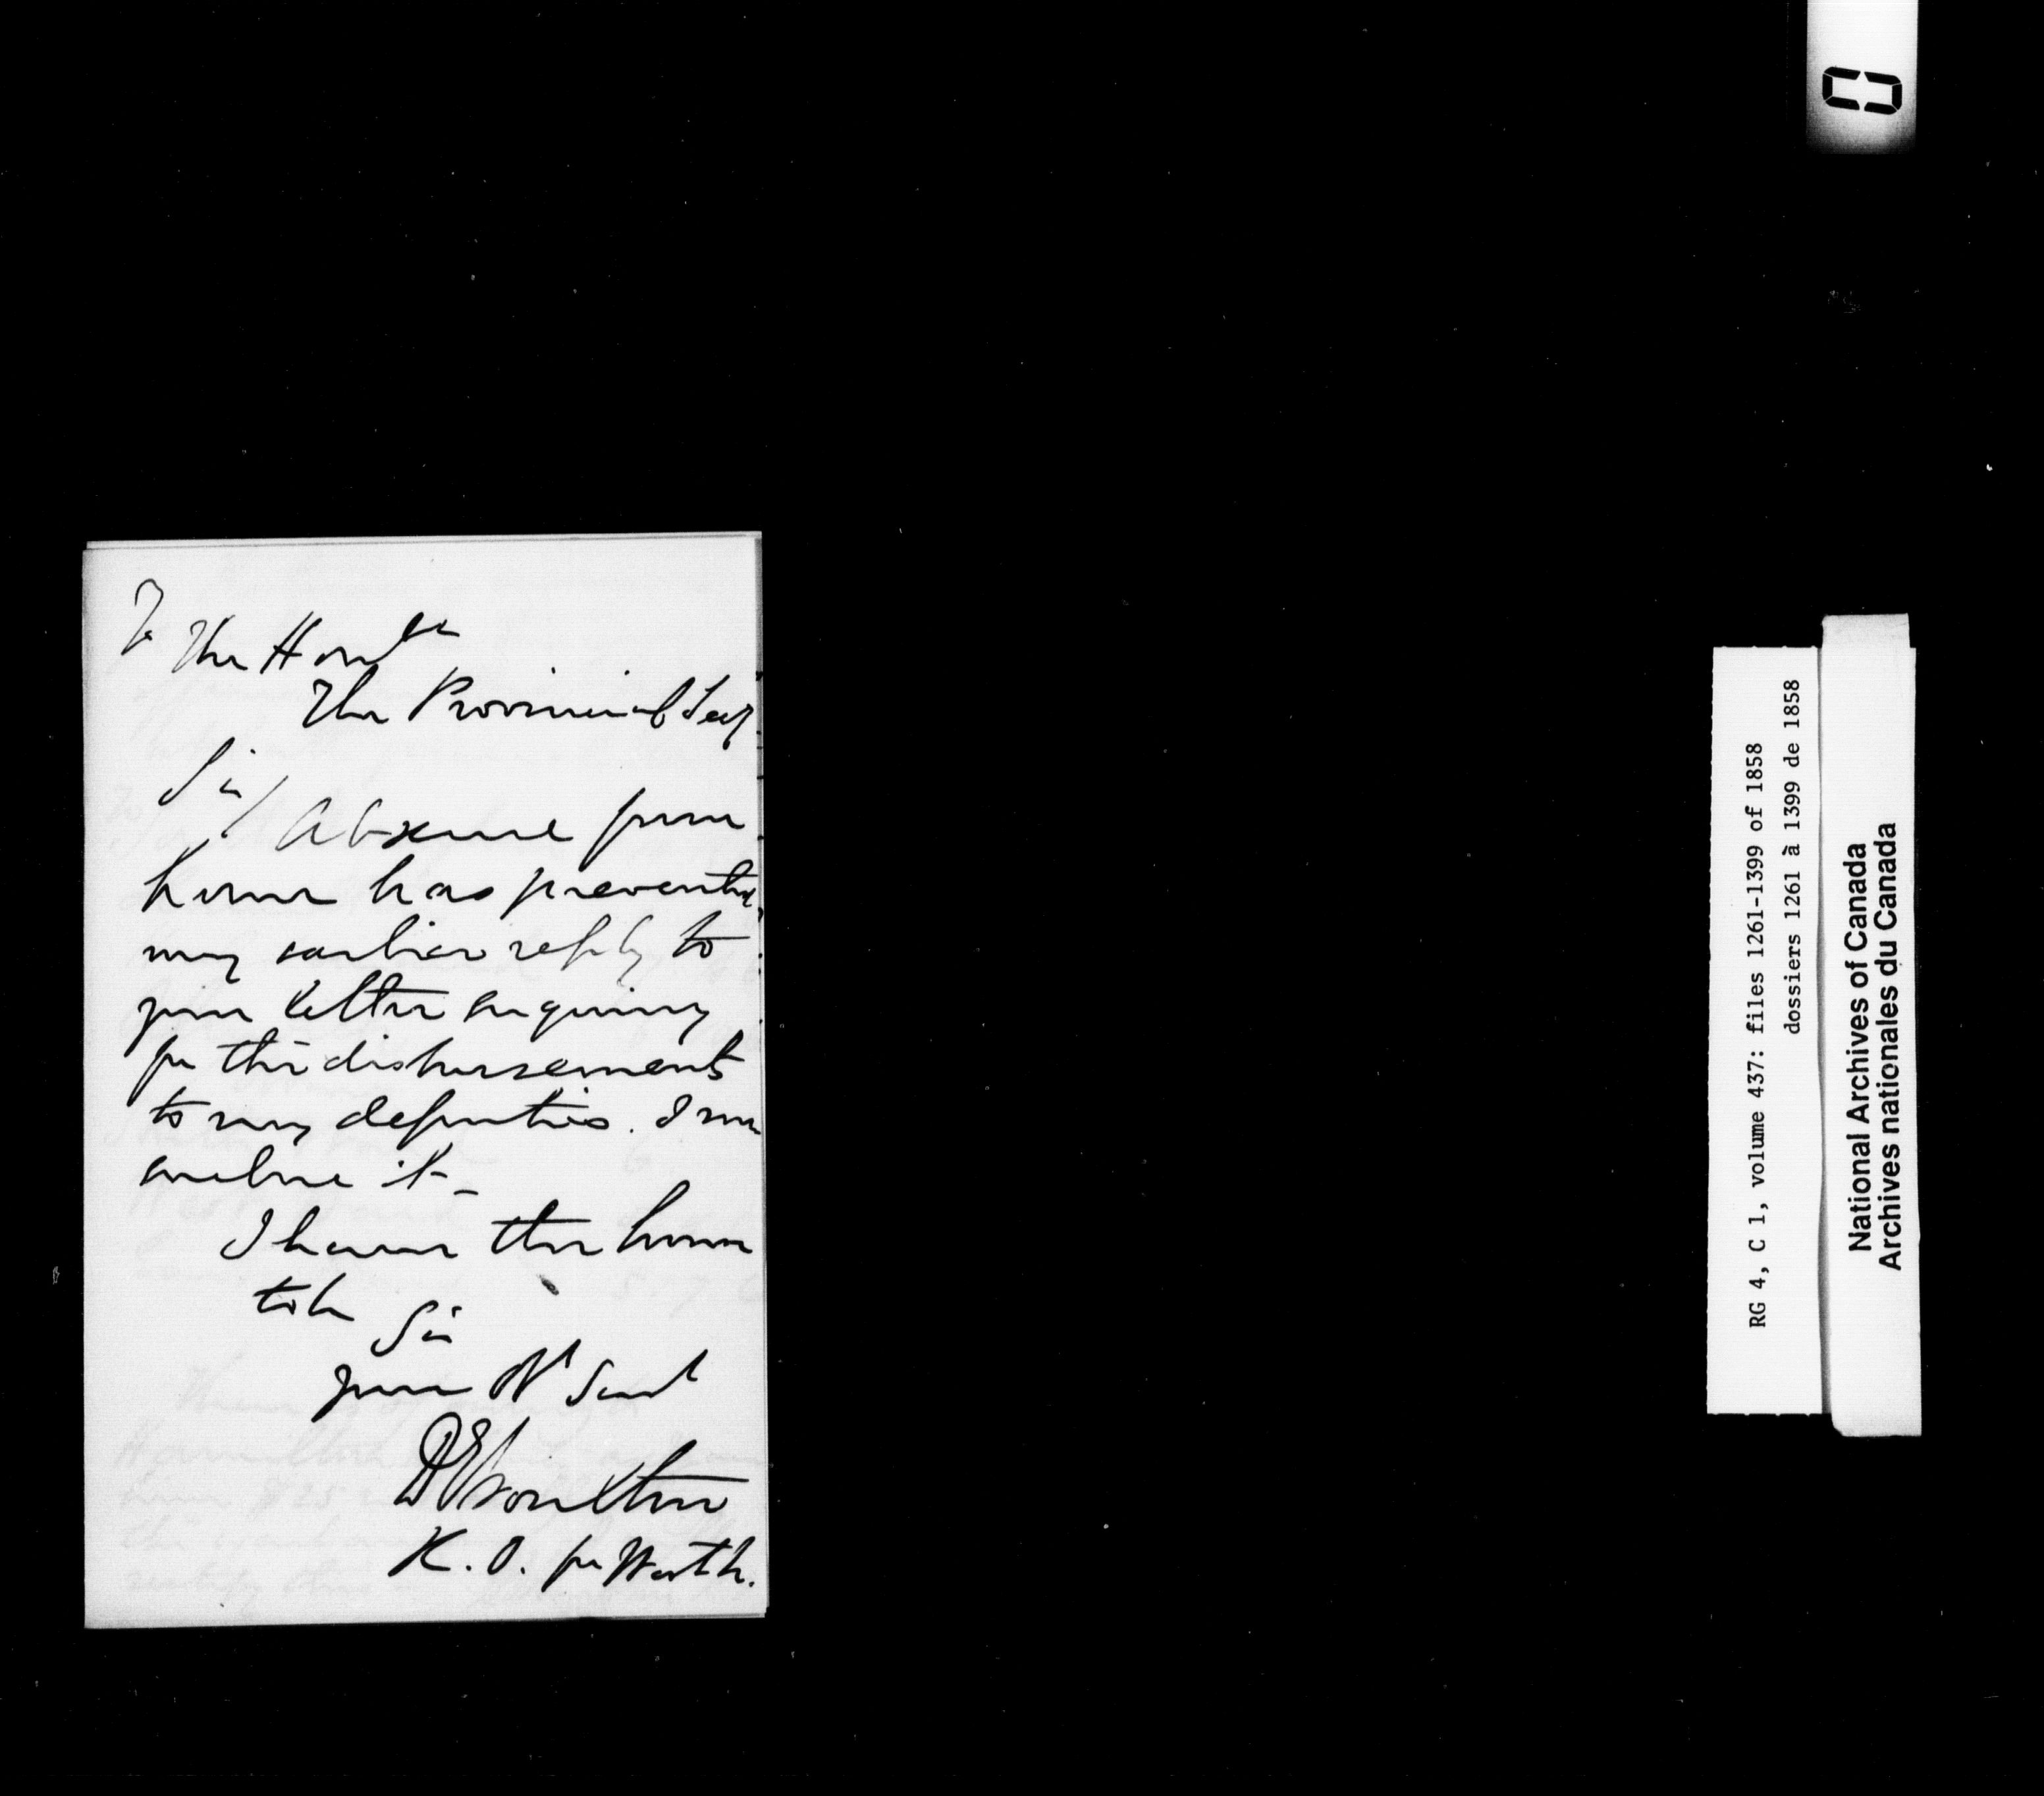 To
The Honble
The Provincial Secy
Sir/
Absence from
home has prevented
my earlier reply to
your letter enquiring
for the disbursements
to my deputies. I now
enclose it_
I have the honor
to be
Sir
your Ob Servt
D'E Boulton
R. O. for Worth.
RG 4, C 1, volume 437: files 1261-1399 of 1858
dossiers 1261 à 1399 de 1858
National Archives of Canada
Archives nationales du Canada
0